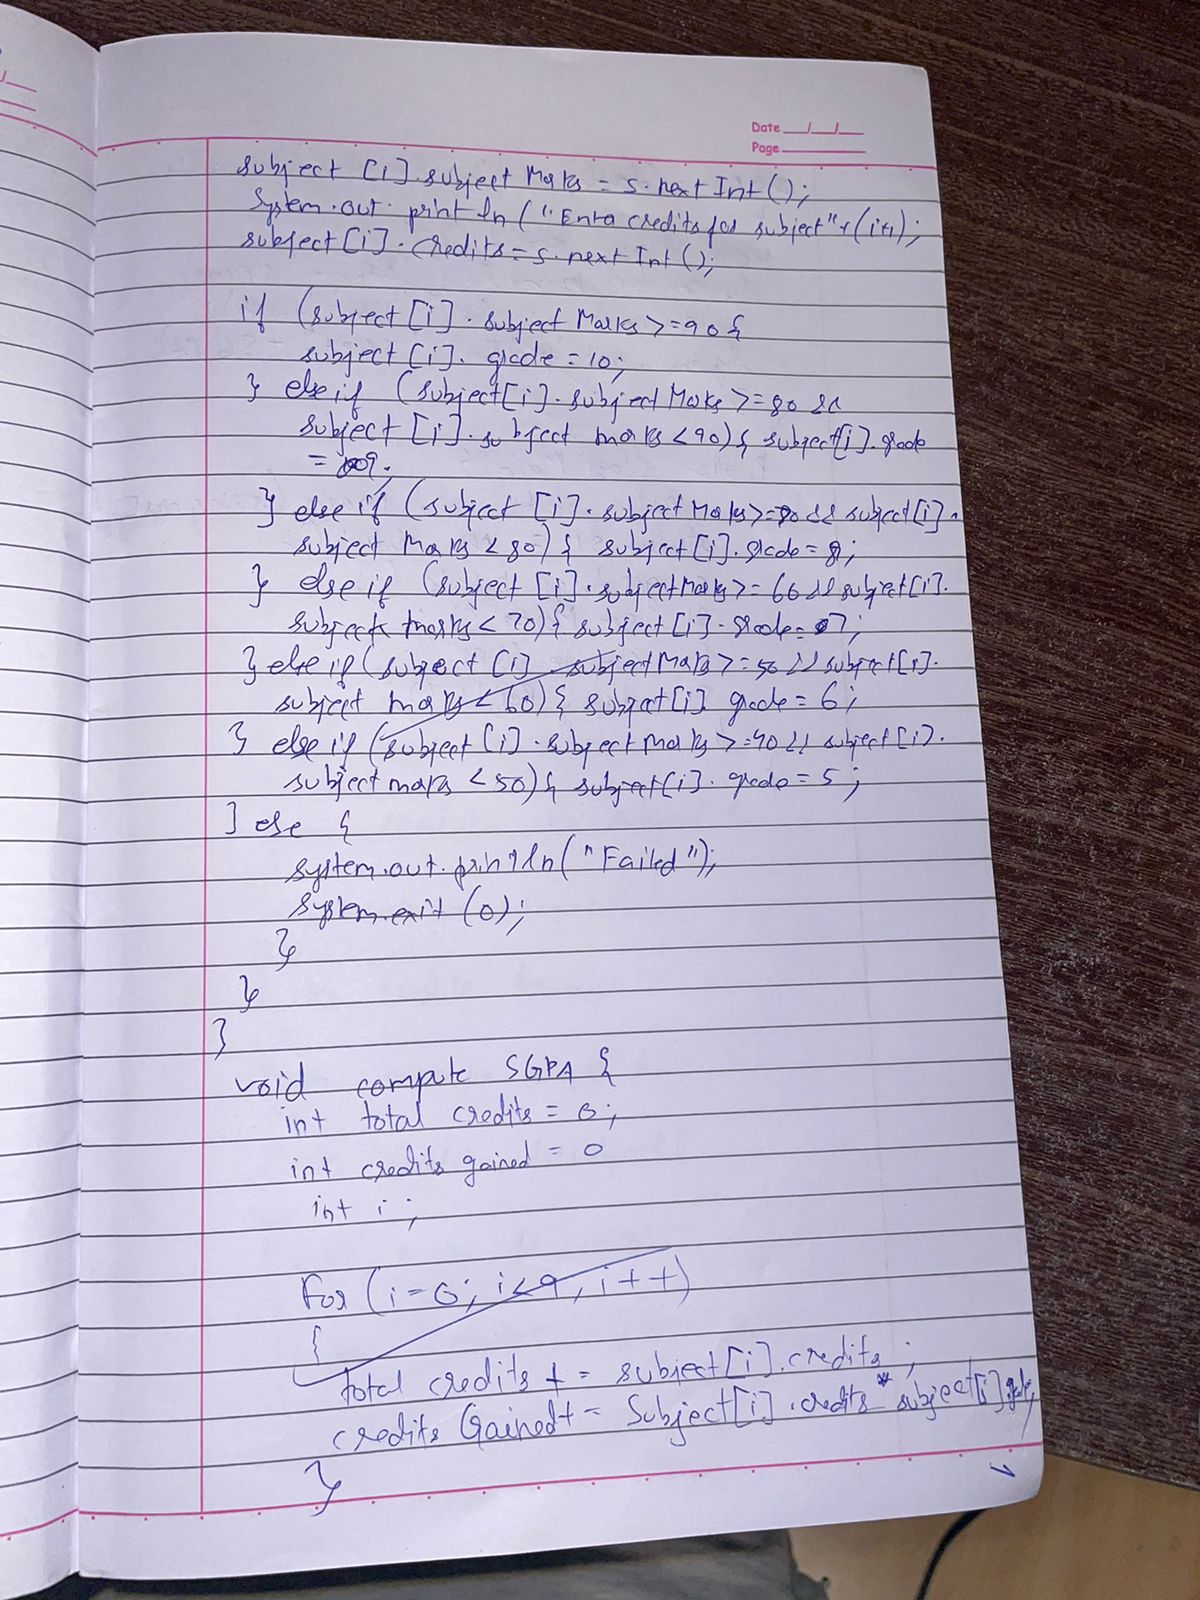 Date __/__/__
Page
subject [i].subject Marks = s.next Int();
System.out.println("Enter credits for subject"+(i+1);
subject[i].credits = s.next Int();
if (subject[i].subject Marks >=90{
subject [i]. grade = 10;
} else if (subject[i].subject Marks >=80 &&
subject [i].subject marks <90){ subject[i].grade
= 9;
} else if (subject [i].subject Marks>=70 && subject[i].
subject Marks <80) { subject[i].grade=8;
} else if (subject [i].subject Marks >= 60 && subject[i].
subject marks < 70){ subject[i].grade=7;
} else if (subject [i] subject Marks >=50 && subject[i].
subject marks < 60){ subject[i] grade = 6;
} else if (subject [i].subject marks >=40 && subject [i].
subject marks <50){ subject[i]. grade = 5;
} else {
system.out.println("Failed");
system.exit (0);
}
}
}
void compute SGPA {
int total credits = 0;
int credits gained = 0
int i ;
For (i=0; i<9, i++)
{
total credits += subject[i].credits ;
credits Gained+ = Subject[i].credits * subject[i].grade;
}